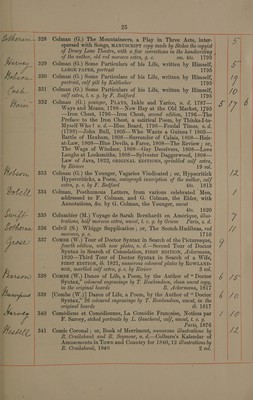 25
328 Colman (G.) The Mountaineers, a Play in Three Acts, inter-
spersed with Songs, MANUSCRIPT copy made by Stokes the copyist
of Drury Lane Theatre, with a few corrections in the handwriting
of the author, old red morocco extra, g. e. sm. 4to. 1793
5
329 Colman (G.) Some Particulars of his Life, written by Himself,
LARGE PAPER, portrait 1795
5
330 Colman (G.) Some Particulars of his Life, written by Himself,
portrait, calf gilt by Kalthoeber 1795
331 Colman (G.) Some Particulars of his Life, written by Himself,
calf extra, t. e. g. by F. Bedford 1795
10
332 Colman (G.) younger, PLAYS, Inkle and Yarico, n. d. 1787—
Ways and Means, 1788—New Hay at the Old Market, 1795
—Iron Chest, 1796—Iron Chest, second edition, 1796—The
Preface to the Iron Chest, a satirical Poem, by Thinks-I-to-
Myself-Who? n. d.—Blue Beard, 1798—Feudal Times, n. d.
(1799)—John Bull, 1805—Who Wants a Guinea ? 1805—
Battle of Hexham, 1808—Surrender of Calais, 1808—Heir-
at-Law, 1808—Blue Devils, a Farce, 1808—The Review; or,
The Wags of Windsor, 1808—Gay Deceivers, 1808—Love
Laughs at Locksmiths, 1808—Sylvester Daggerwood, 1808—
Law of Java, 1822, ORIGINAL EDITIONS, sprinkled calf extra,
by Riviere 19 vol.
5 17 6
Nelson
333 Colman (G.) the Younger, Vagaries Vindicated; or, Hypocritick
Hypercriticks, a Poem, autograph inscription of the author, calf
extra, g. e. by F. Bedford 4to. 1813
12
334 Colman, Posthumous Letters, from various celebrated Men,
addressed to F. Colman, and G. Colman, the Elder, with
Annotations, &c. by G. Colman, the Younger, uncut
4to. 1820
1
Swift
335 Colmanches (M.) Voyage de Sarah Bernhardt en Amerique, illus-
trations, half morocco extra, uncut, t. e. g. by Groene Paris, n. d.
7
336 Colvil (S.) Whiggs Supplication; or, The Scotch-Hudibras, red
morocco, g. e. 1710
337 COMBE (W.) Tour of Doctor Syntax in Search of the Picturesque,
fourth edition, with new plates, n. d.—Second Tour of Doctor
Syntax in Search of Consolation, FIRST EDITION, Ackermann,
1820—Third Tour of Doctor Syntax in Search of a Wife,
FIRST EDITION, ib. 1821, numerous coloured plates by ROWLAND-
SON, marbled calf extra, g. e. by Riviere 3 vol.
338 COMBE (W.) Dance of Life, a Poem, by the Author of “ Doctor
Syntax,” coloured engravings by T. Rowlandson, clean uncut copy,
in the original boards R. Ackermann, 1817
6
339 [Combe (W.)] Dance of Life, a Poem, by the Author of “ Doctor
Syntax,” 26 coloured engravings by T. Rowlandson, uncut, in the
original boards ib. 1817
6 10
340 Comédiens et Comédiennes, La Comédie Française, Notices par
F. Sarcey, etched portraits by L. Gaucherel, calf, uncut, t. e. g.
Paris, 1876
1 10
341 Comic Coronal; or, Book of Merriment, numerous illustrations by
R. Cruikshank and R. Seymour, n. d.—Colburn's Kalendar of
Amusements in Town and Country for 1840, 12 illustrations by
R. Cruikshank, 1840 2 vol.
12